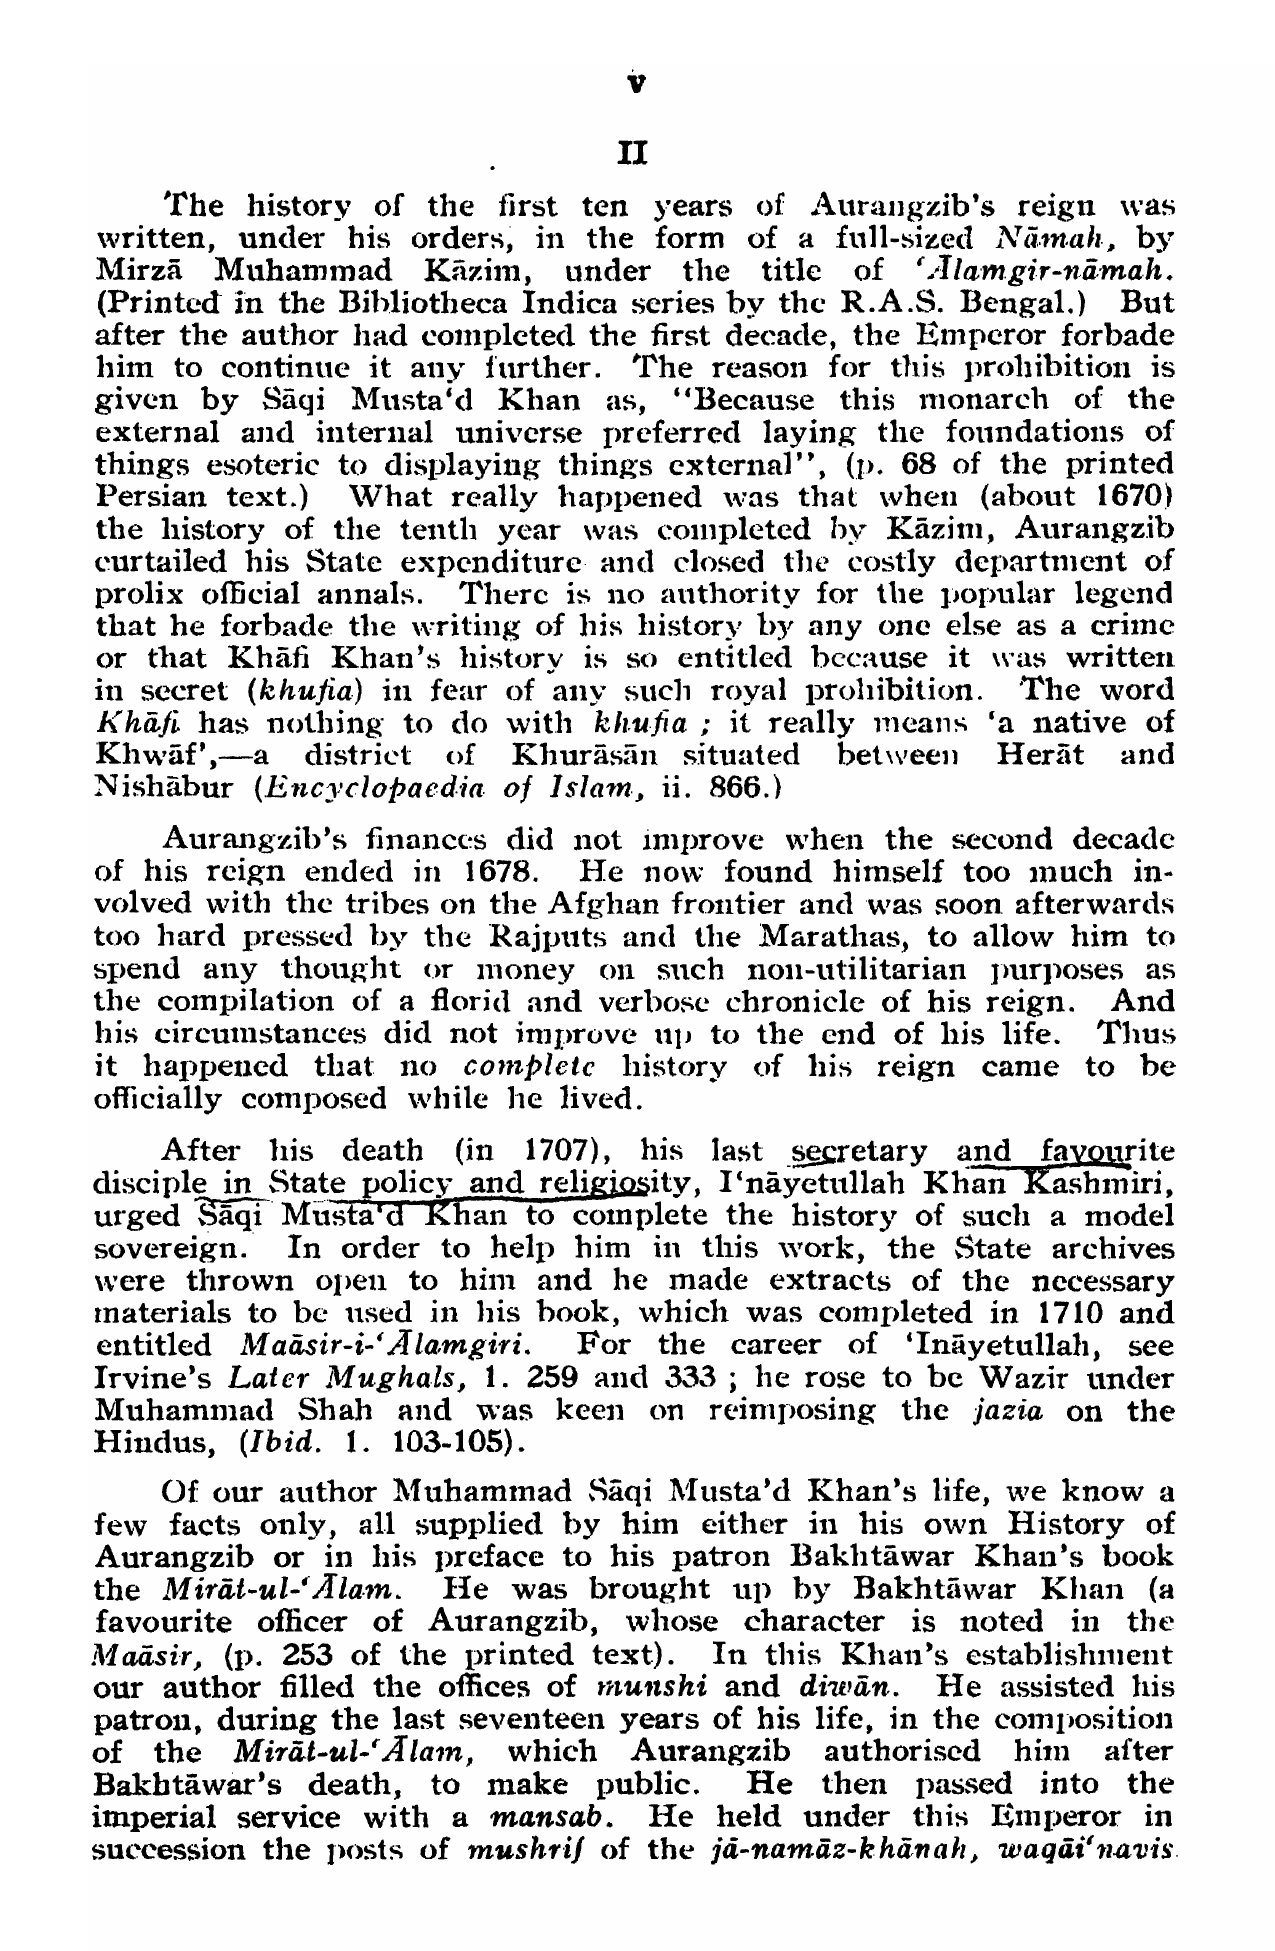 v
II
The history of the first ten years of Aurangzib's reign was
written, under his orders, in the form of a full-sized Nāmah, by
Mirzā Muhammad Kāzim, under the title of ‘Ālamgir-nāmah.
(Printed in the Bibliotheca Indica series by the R.A.S. Bengal.) But
after the author had completed the first decade, the Emperor forbade
him to continue it any further. The reason for this prohibition is
given by Sāqi Musta‘d Khan as, “Because this monarch of the
external and internal universe preferred laying the foundations of
things esoteric to displaying things external”, (p. 68 of the printed
Persian text.) What really happened was that when (about 1670)
the history of the tenth year was completed by Kāzim, Aurangzib
curtailed his State expenditure and closed the costly department of
prolix official annals. There is no authority for the popular legend
that he forbade the writing of his history by any one else as a crime
or that Khāfi Khan's history is so entitled because it was written
in secret (khufia) in fear of any such royal prohibition. The word
Khāfi has nothing to do with khufia ; it really means ‘a native of
Khwāf’,—a district of Khurāsān situated between Herāt and
Nishābur (Encyclopaedia of Islam, ii. 866.)
Aurangzib's finances did not improve when the second decade
of his reign ended in 1678. He now found himself too much in-
volved with the tribes on the Afghan frontier and was soon afterwards
too hard pressed by the Rajputs and the Marathas, to allow him to
spend any thought or money on such non-utilitarian purposes as
the compilation of a florid and verbose chronicle of his reign. And
his circumstances did not improve up to the end of his life. Thus
it happened that no complete history of his reign came to be
officially composed while he lived.
After his death (in 1707), his last secretary and favourite
disciple in State policy and religiosity, I‘nāyetullah Khan Kashmiri,
urged Sāqi Musta‘d Khan to complete the history of such a model
sovereign. In order to help him in this work, the State archives
were thrown open to him and he made extracts of the necessary
materials to be used in his book, which was completed in 1710 and
entitled Maāsir-i-‘Ālamgiri. For the career of ‘Ināyetullah, see
Irvine's Later Mughals, 1. 259 and 333 ; he rose to be Wazir under
Muhammad Shah and was keen on reimposing the jazia on the
Hindus, (Ibid. 1. 103-105).
Of our author Muhammad Sāqi Musta'd Khan's life, we know a
few facts only, all supplied by him either in his own History of
Aurangzib or in his preface to his patron Bakhtāwar Khan's book
the Mirāt-ul-‘Ālam. He was brought up by Bakhtāwar Khan (a
favourite officer of Aurangzib, whose character is noted in the
Maāsir, (p. 253 of the printed text). In this Khan's establishment
our author filled the offices of munshi and diwān. He assisted his
patron, during the last seventeen years of his life, in the composition
of the Mirāt-ul-‘Ālam, which Aurangzib authorised him after
Bakhtāwar's death, to make public. He then passed into the
imperial service with a mansab. He held under this Emperor in
succession the posts of mushrif of the jā-namāz-khānah, waqāi‘navis